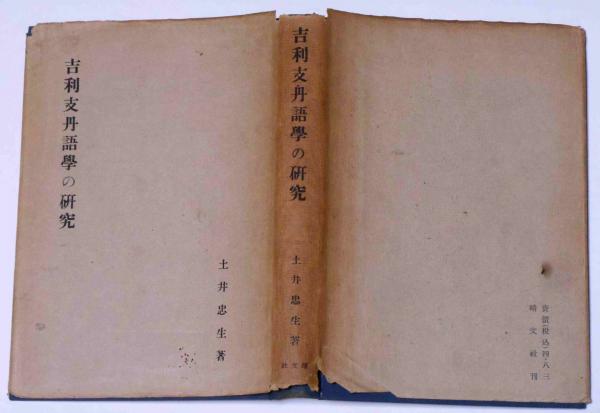 吉利支丹語學の研究
土井忠生著
吉利支丹語學の研究
土井忠生著
靖文社
賣價(税込)四・八三
靖文社刊